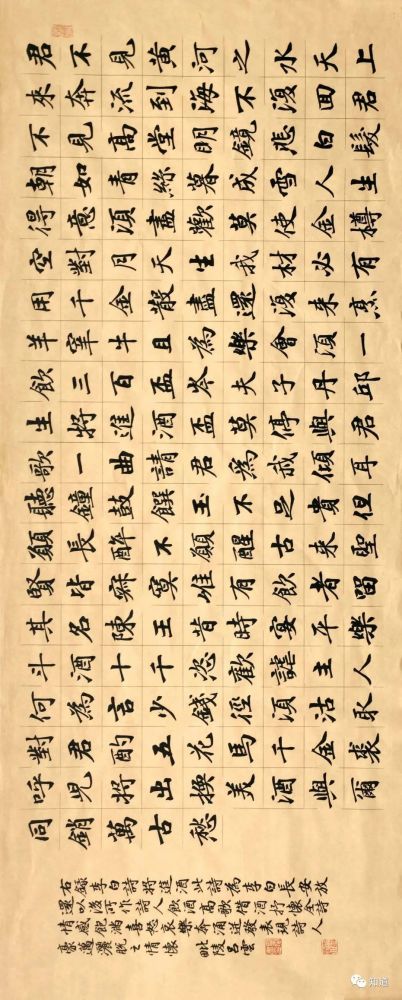 君不見黃河之水天上
來奔流到海不復回君
不見高堂明鏡悲白髮
朝如青絲暮成雪人生
得意須盡歡莫使金樽
空對月天生我材必有
用千金散盡還復來烹
羊宰牛且為樂會須一
飲三百盃岑夫子丹邱
生將進酒盃莫停與君
歌一曲請君為我傾耳
聽鐘鼓饌玉不足貴但
願長醉不願醒古來聖
賢皆寂寞惟有飲者留
其名陳王昔時宴平樂
斗酒十千恣歡謔主人
何為言少錢徑須沽取
對君酌五花馬千金裘
呼兒將出換美酒與爾
同銷萬古愁
右錄李白詩將進酒此詩為李白長安放
還以後所作詩人飲酒高歌借酒抒懷全詩
情感飽滿喜怒哀樂奔涌迸發表現詩人
豪邁灑脫之情懷 毗陵呂雲
知道